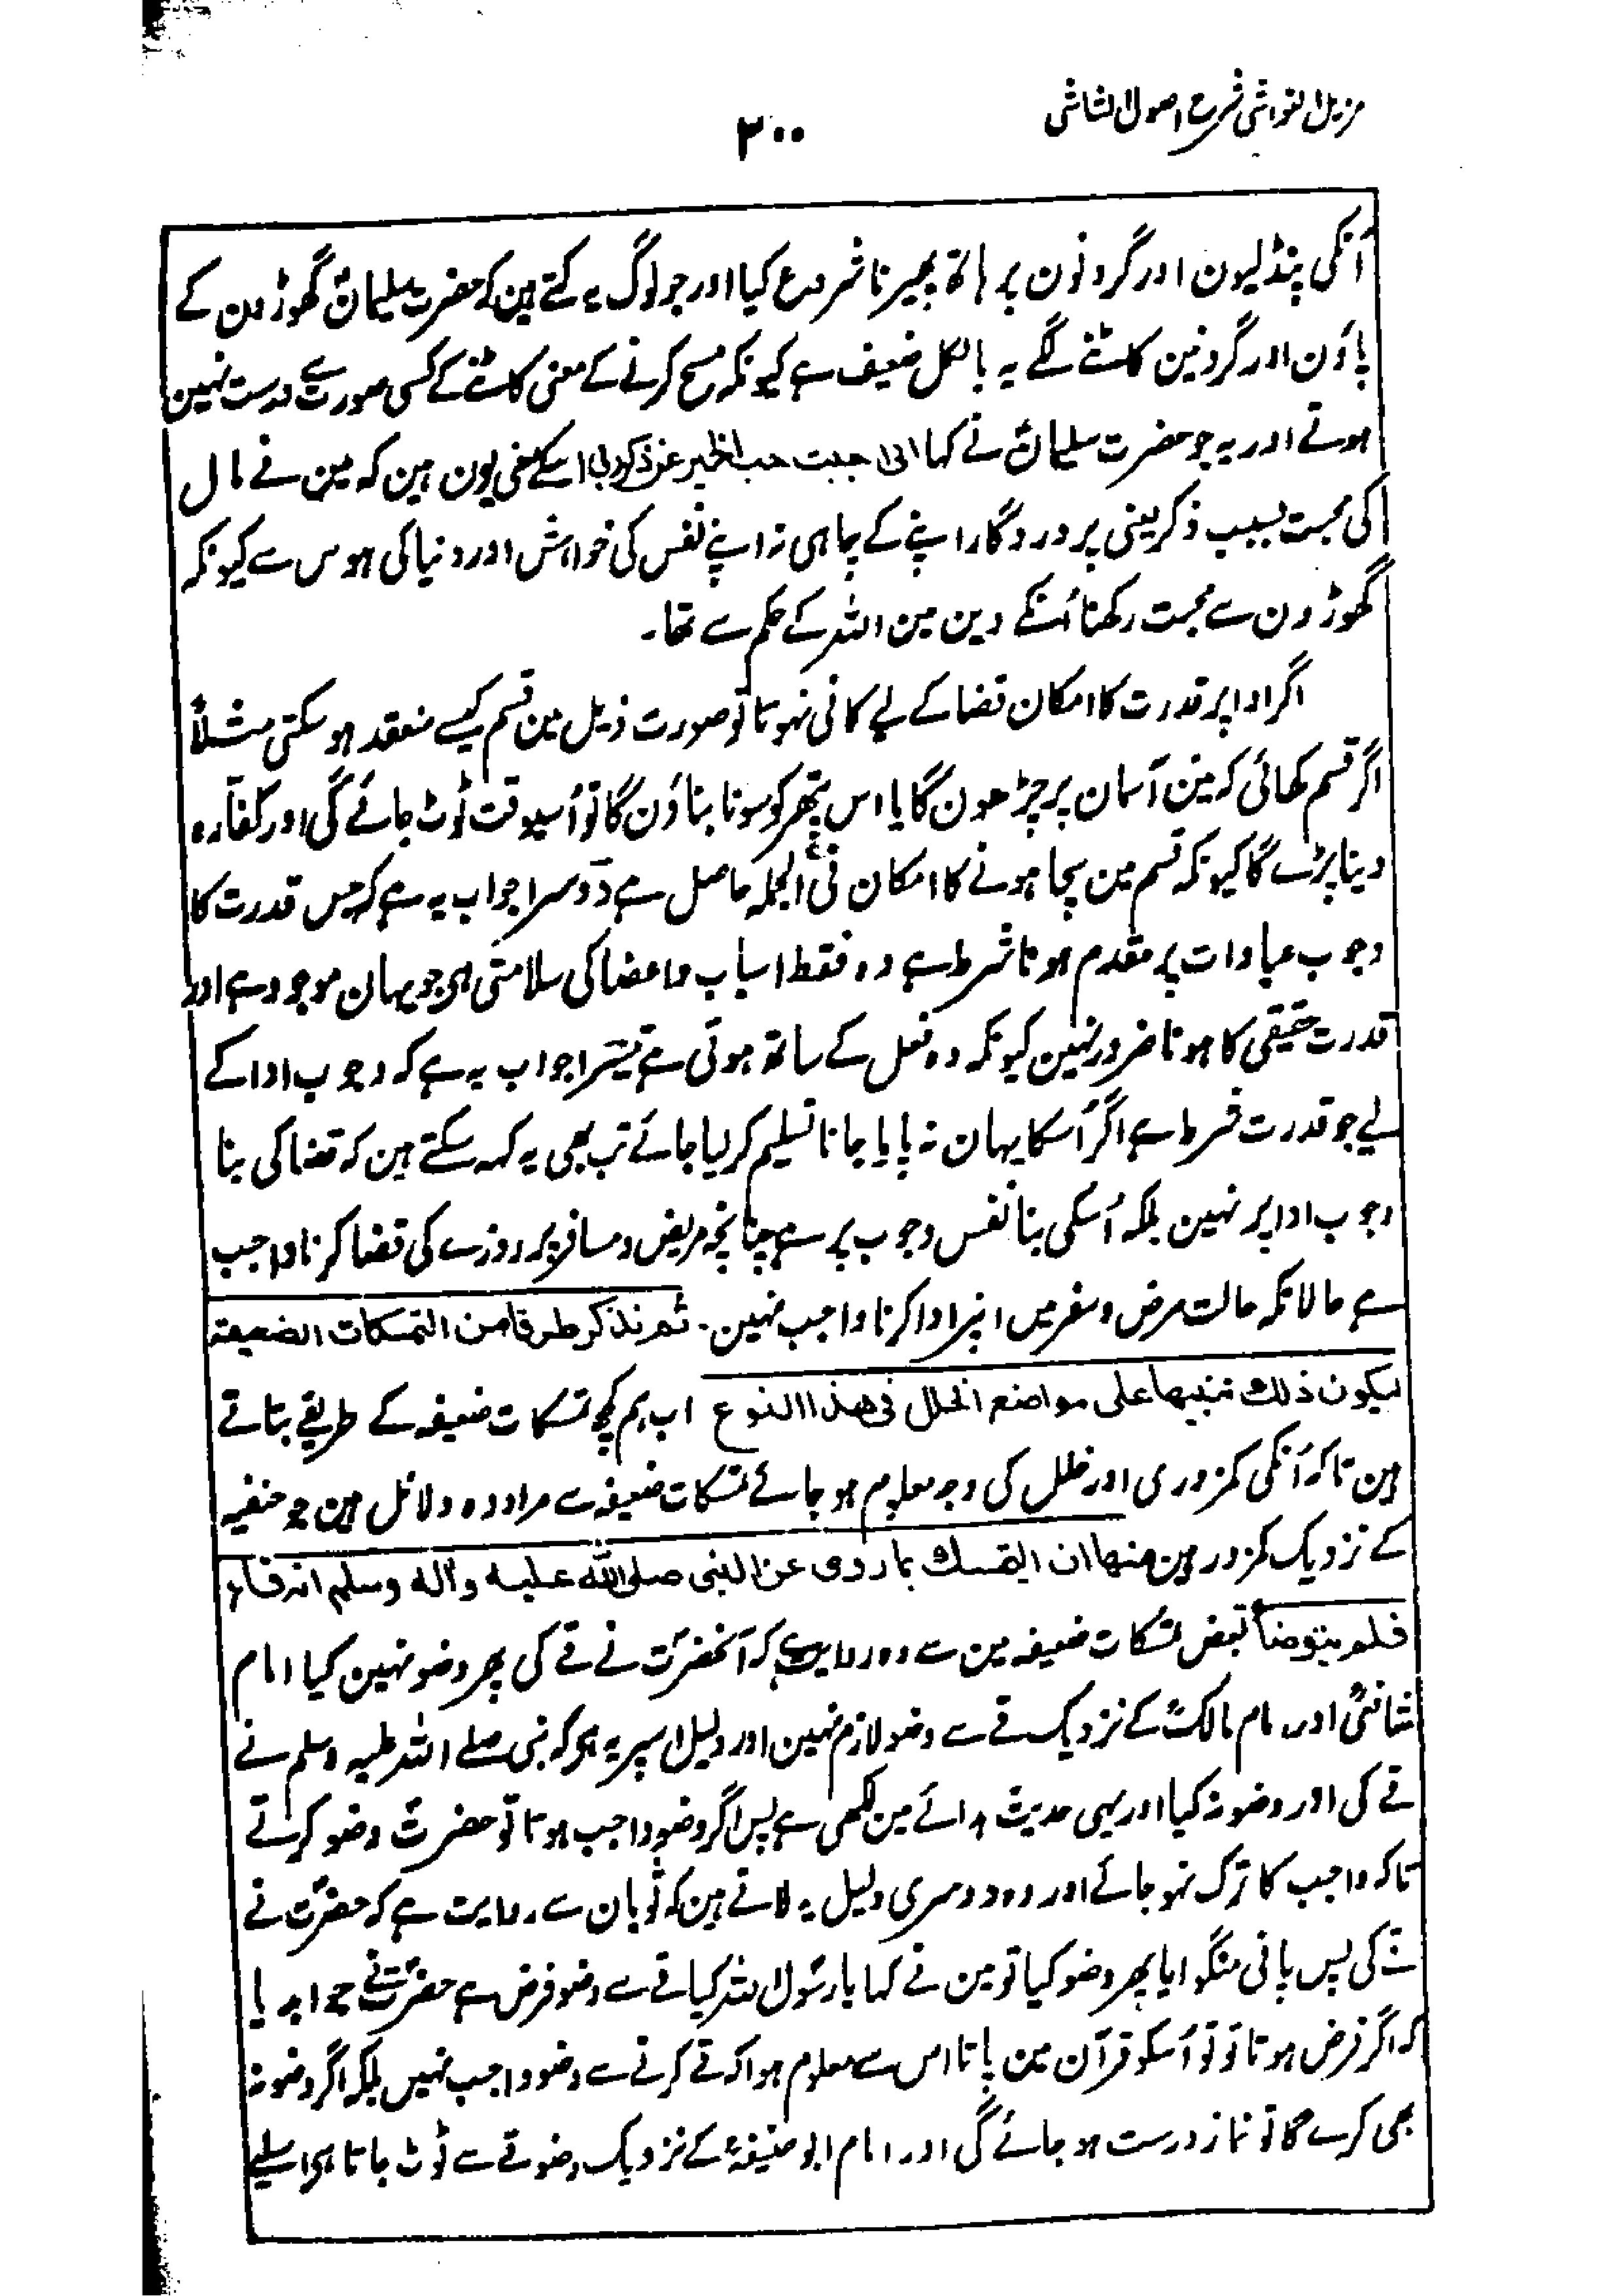 مزیل الغواشی شرح اصول الشاشی
۲۰۰
اُنکی پنڈلیون اور گردنون پر ہاتھ پھیرنا شروع کیا اور جو لوگ یہ کہتے ہین کہ حضرت سلیمانؑ گھوڑون کے
پاؤن اور گردنین کاٹنے لگے یہ بالکل ضعیف ہے کیونکہ مسح کرنے کے معنی کاٹنے کے کسی صورت سے درست نہین
ہوتے اور یہ جو حضرت سلیمانؑ نے کہا انی احببت حب الخیر عن ذکر ربی اسکے معنی یون ہین کہ مین نے مال
کی محبت بسبب ذکر یعنی پروردگار اپنے کے چاہی نہ اپنے نفس کی خواہش اور دنیا کی ہوس سے کیونکہ
گھوڑون سے محبت رکھنا اُنکے دین مین اللہ کے حکم سے تھا۔
اگر ادا پر قدرت کا امکان قضا کے لیے کافی نہوتا تو صورت ذیل مین قسم کیسے منعقد ہو سکتی مثلاً
اگر قسم کھائی کہ مین آسمان پر چڑھون گا یا اس پتھر کو سونا بناؤن گا تو اُسیوقت ٹوٹ جائے گی اور کفارہ
دینا پڑے گا کیونکہ قسم مین سچا ہونے کا امکان فی الجملہ حاصل ہے دوسرا جواب یہ ہے کہ جس قدرت کا
وجوب عبادات پر مقدم ہونا شرط ہے وہ فقط اسباب و اعضا کی سلامتی ہی جو یہان موجود ہے اور
قدرت حقیقی کا ہونا ضرور نہین کیونکہ وہ فعل کے ساتھ ہوتی ہے تیسرا جواب یہ ہے کہ وجوب ادا کے
لیے جو قدرت شرط ہے اگر اُسکا یہان نہ پایا جانا تسلیم کر لیا جائے تب بھی یہ کہہ سکتے ہین کہ قضا کی بنا
وجوب ادا پر نہین بلکہ اُسکی بنا نفس وجوب پر ہے چنانچہ مریض و مسافر پر روزے کی قضا کرنا واجب
ہے حالانکہ حالت مرض و سفر میں انپر ادا کرنا واجب نہین۔ ثم نذکر طرقا من التمسکات الضعیفة
لیکون ذلک تنبیها علی مواضع الخلل فی هذا النوع اب ہم کچھ تمسکات ضعیفہ کے طریقے بتاتے
ہین تاکہ اُنکی کمزوری اور خلل کی وجہ معلوم ہو جائے تمسکات ضعیفہ سے مراد وہ دلائل ہین جو حنفیہ
کے نزدیک کمزور ہین منها ان التمسک بما روی عن النبی صلی الله علیه وآله وسلم انه قاء
فلم یتوضأ بعض تمسکات ضعیفہ مین سے وہ روایت ہے کہ آنحضرتؐ نے قے کی پھر وضو نہین کیا امام
شافعیؒ اور امام مالکؒ کے نزدیک قے سے وضو لازم نہین اور دلیل اسپر یہ ہی کہ نبی صلے اللہ علیہ وسلم نے
قے کی اور وضو نہ کیا اور یہی حدیث ہدائے مین لکھی ہے پس اگر وضو واجب ہوتا تو حضرتؐ وضو کرتے
تاکہ واجب کا ترک نہو جائے اور وہ دوسری دلیل یہ لاتے ہین کہ ثوبان سے روایت ہے کہ حضرتؐ نے
قے کی پس پانی منگوایا پھر وضو کیا تو مین نے کہا یا رسول اللہ کیا قے سے وضو فرض ہے حضرتؐ نے جواب دیا
کہ اگر فرض ہوتا تو تو اُسکو قرآن مین پاتا اس سے معلوم ہوا کہ قے کرنے سے وضو واجب نہیں بلکہ اگر وضو نہ
بھی کرے گا تو نماز درست ہو جائے گی اور امام ابو حنیفہؒ کے نزدیک وضو قے سے ٹوٹ جاتا ہی اسلیے